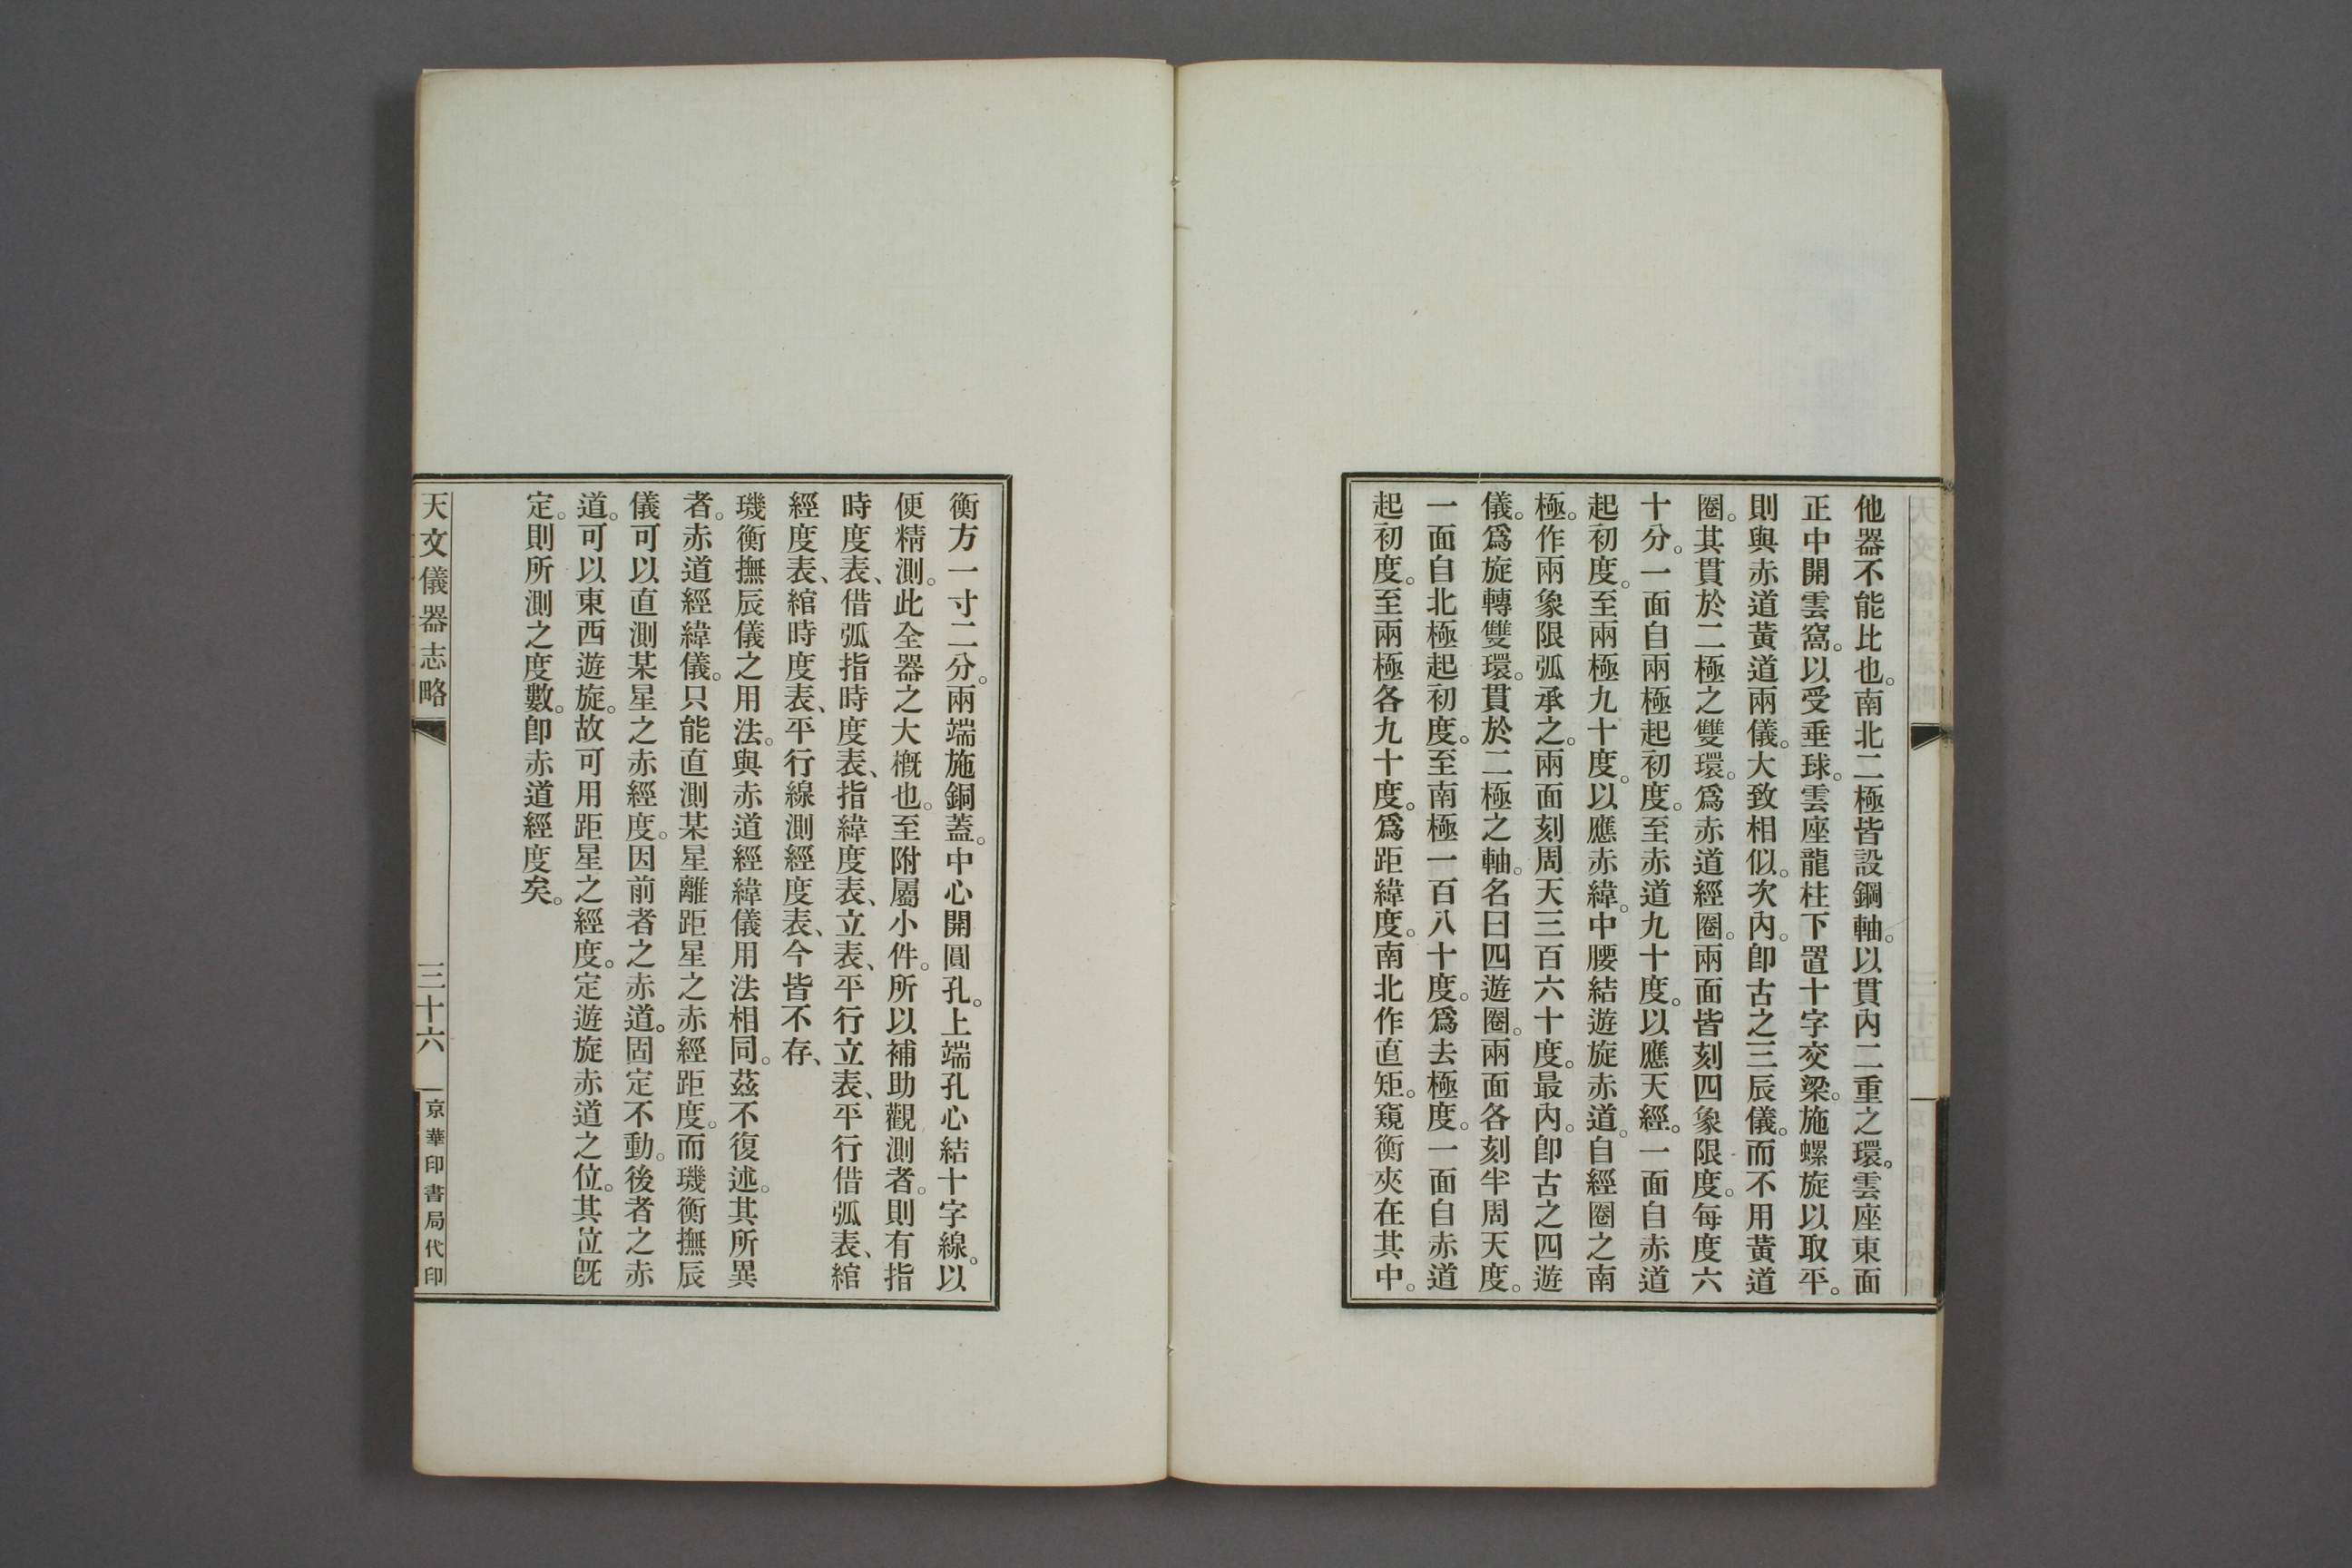 他器不能比也。南北二極皆設鋼軸。以貫內二重之環。雲座東面
正中開雲窩。以受垂球。雲座龍柱下置十字交梁。施螺旋以取平。
則與赤道黃道兩儀。大致相似。次內。卽古之三辰儀。而不用黃道
圈。其貫於二極之雙環。爲赤道經圈。兩面皆刻四象限度。每度六
十分。一面自兩極起初度。至赤道九十度。以應天經。一面自赤道
起初度。至兩極九十度。以應赤緯。中腰結遊旋赤道。自經圈之南
極。作兩象限弧承之。兩面刻周天三百六十度。最內。卽古之四遊
儀。爲旋轉雙環。貫於二極之軸。名曰四遊圈。兩面各刻半周天度。
一面自北極起初度。至南極一百八十度。爲去極度。一面自赤道
起初度。至兩極各九十度。爲距緯度。南北作直矩。窺衡夾在其中。
衡方一寸二分。兩端施銅蓋。中心開圓孔。上端孔心結十字線。以
便精測。此全器之大槪也。至附屬小件。所以補助觀測者。則有指
時度表、借弧指時度表、指緯度表、立表、平行立表、平行借弧表、綰
經度表、綰時度表、平行線測經度表、今皆不存、
璣衡撫辰儀之用法。與赤道經緯儀用法相同。茲不復述。其所異
者。赤道經緯儀。只能直測某星離距星之赤經距度。而璣衡撫辰
儀可以直測某星之赤經度。因前者之赤道。固定不動。後者之赤
道。可以東西遊旋。故可用距星之經度。定遊旋赤道之位。其位旣
定。則所測之度數。卽赤道經度矣。
天文儀器志略
三十六
京華印書局代印